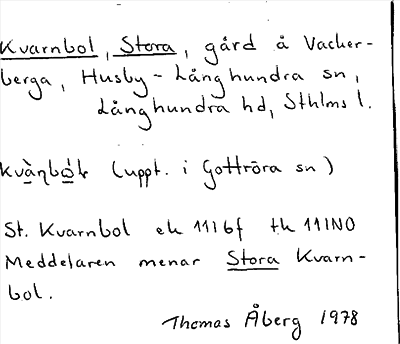 Kvarnbol, Stora, gård å Vacker-
berga, Husby-Långhundra sn,
Långhundra hd, Sthlms l.
(uppt. i Gottröra sn)
St. Kvarnbol ek 11I6f tk 11INO
Meddelaren menar Stora Kvarn-
bol.
Thomas Åberg 1978